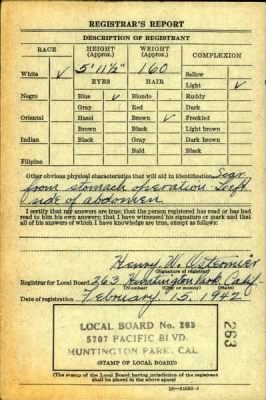 REGISTRAR'S REPORT
DESCRIPTION OF REGISTRANT
RACE HEIGHT (Approx.) WEIGHT (Approx.) COMPLEXION
White ✓ 5' 11½" 160 Sallow
EYES HAIR Light ✓
Negro Blue ✓ Blonde Ruddy
Gray Red Dark
Oriental Hazel Brown ✓ Freckled
Brown Black Light brown
Indian Black Gray Dark brown
Bald Black
Filipino
Other obvious physical characteristics that will aid in identification Scar
from stomach operation Left
side of abdomen
I certify that my answers are true; that the person registered has read or has had
read to him his own answers; that I have witnessed his signature or mark and that
all of his answers of which I have knowledge are true, except as follows:
Henry W. Ostermier
(Signature of registrar)
Registrar for Local Board 263 Huntington Park, Calif.
(Number) (City or county) (State)
Date of registration February 15, 1942
LOCAL BOARD No. 263
5707 PACIFIC BLVD.
HUNTINGTON PARK, CAL.
263
(STAMP OF LOCAL BOARD)
(The stamp of the Local Board having jurisdiction of the registrant
shall be placed in the above space)